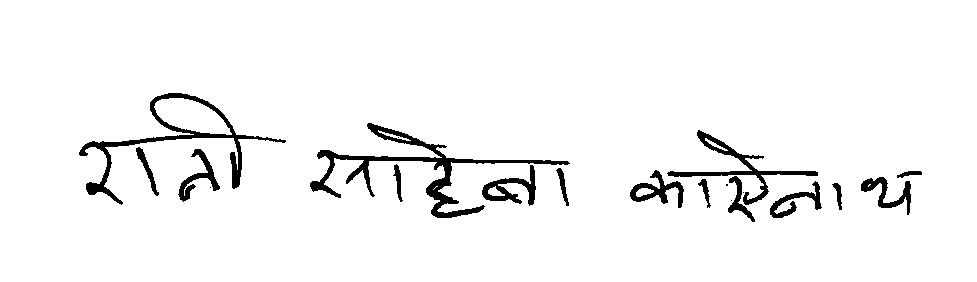 रानी साहेबा काऐनाथ